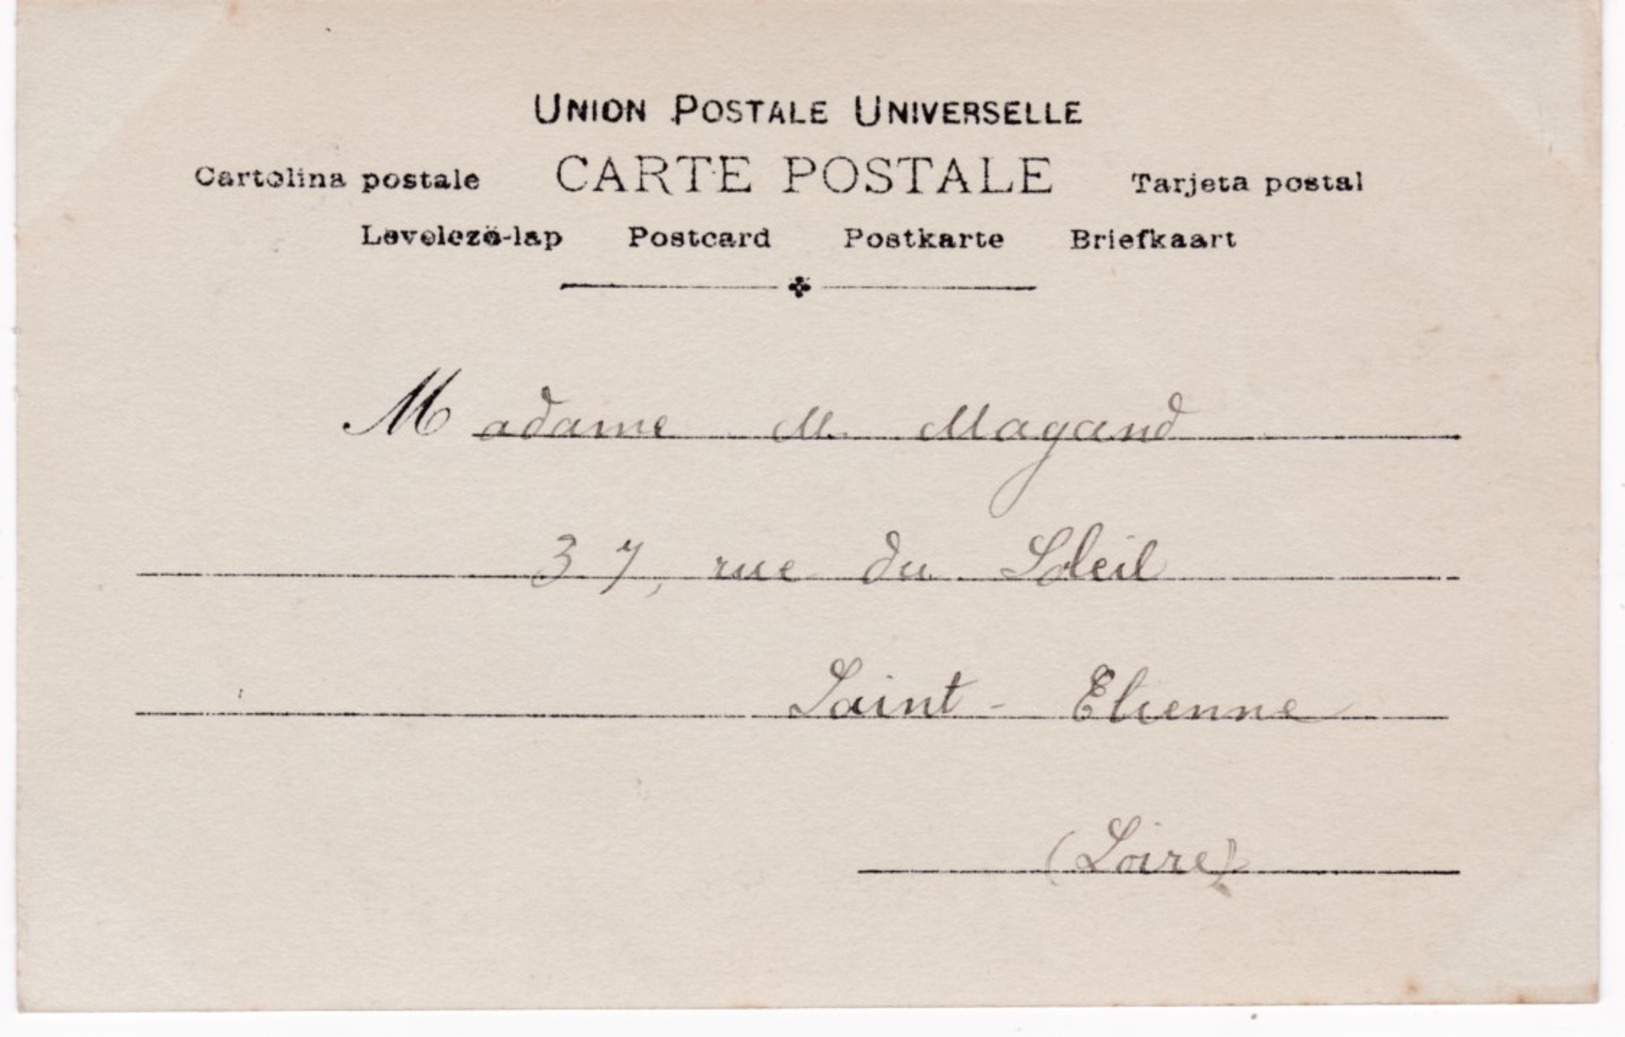 UNION POSTALE UNIVERSELLE
Cartolina postale CARTE POSTALE Tarjeta postal
Levelező-lap Postcard Postkarte Briefkaart
Madame M. Magand
37, rue du Soleil
Saint-Etienne
(Loire)